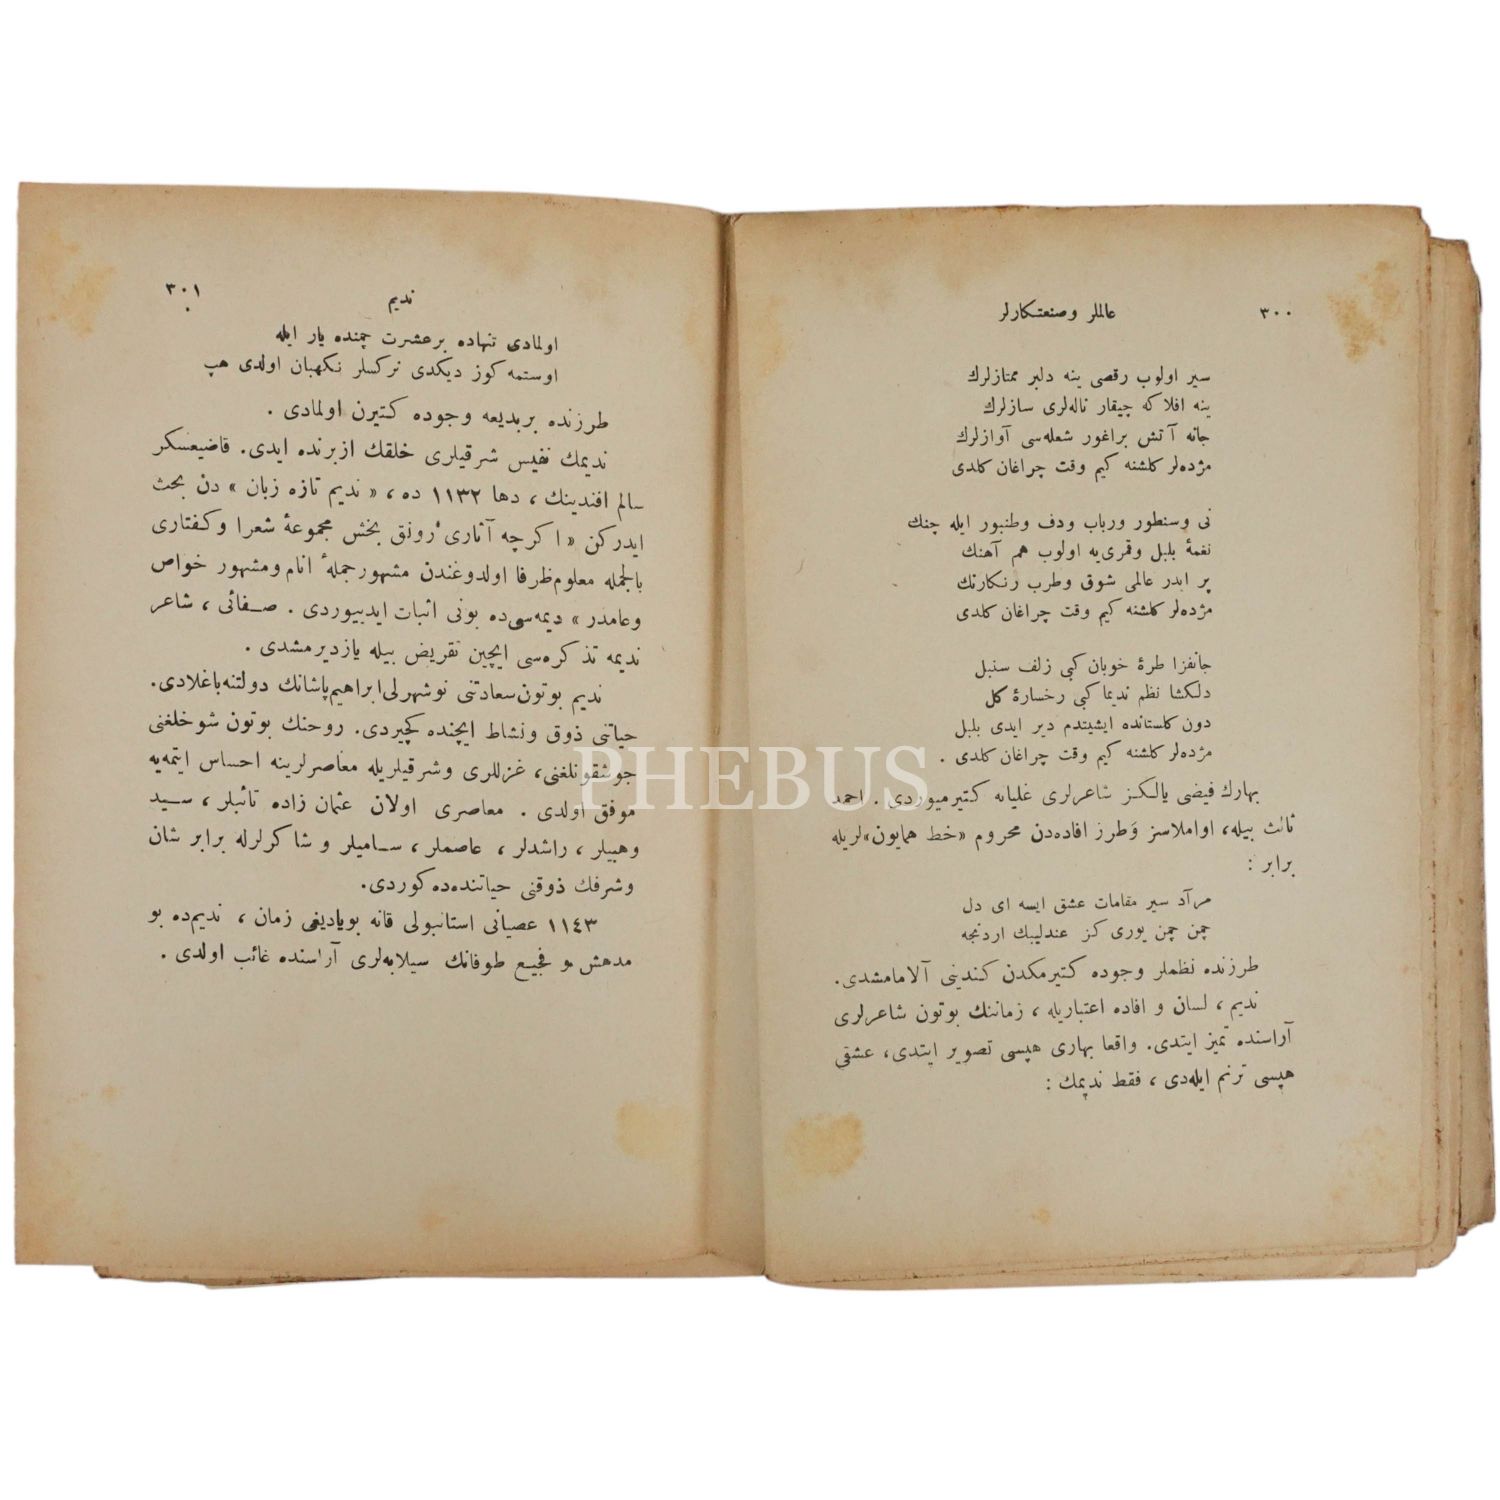 ٣٠٠
عالملر وصنعتكارلر
سير اولوب رقصى ينه دلبر ممتازلرك
ينه افلاكه چيقار ناله‌لرى سازلرك
جانه آتش براغور شعله‌سى آوازلرك
مژده‌لر كلشنه كيم وقت چراغان كلدى
نى وسنطور ورباب ودف وطنبور ايله چنك
نغمۀ بلبل وقمرى‌يه اولوب هم آهنك
پر ايدر عالمى شوق وطرب رنكارنك
مژده‌لر كلشنه كيم وقت چراغان كلدى
جانفزا طرۀ خوبان كبى زلف سنبل
دلكشا نظم نديما كبى رخسارۀ كل
دون كلستانده ايشيتدم دير ايدى بلبل
مژده‌لر كلشنه كيم وقت چراغان كلدى .
بهارك فيضى يالكز شاعرلرى غليانه كتيرميوردى . احمد
ثالث بيله، اواملاسز وطرز افاده‌دن محروم «خط همايون»لريله
برابر :
مرآد سير مقامات عشق ايسه اى دل
چمن چمن يورى كز عندليبك اردنجه
طرزنده نظملر وجوده كتيرمكدن كندينى آلامامشدى.
نديم ، لسان و افاده اعتباريله ، زماننك بوتون شاعرلرى
آراسنده تميز ايتدى. واقعا بهارى هپسى تصوير ايتدى، عشقى
هپسى ترنم ايله‌دى ، فقط نديمك :
٣٠١
نديم
اولمادى تنهاده بر عشرت چمنده يار ايله
اوستمه كوز ديكدى نركسلر نكهبان اولدى هپ
طرزنده بر بديعه وجوده كتيرن اولمادى .
نديمك نفيس شرقيلرى خلقك ازبرنده ايدى. قاضيعسكر
سالم افندينك ، دها ١١٣٢ ده ، « نديم تازه زبان » دن بحث
ايدركن « اكرچه آثارى رونق بخش مجموعۀ شعرا وكفتارى
بالجمله معلوم ظرفا اولدوغندن مشهور جملۀ انام ومشهور خواص
وعامدر » ديمه‌سى‌ده بونى اثبات ايدييوردى . صفائى ، شاعر
نديمه تذكره‌سى ايچين تقريض بيله يازديرمشدى .
نديم بوتون سعادتنى نوشهرلى ابراهيم پاشانك دولتنه باغلادى.
حياتنى ذوق ونشاط ايچنده كچيردى. روحنك بوتون شوخلغنى
جوشقونلغنى، غزللرى وشرقيلريله معاصرلرينه احساس ايتمه‌يه
موفق اولدى . معاصرى اولان عثمان زاده تائبلر ، سيد
وهبيلر ، راشدلر ، عاصملر ، ساميلر و شاكرلرله برابر شان
وشرفك ذوقنى حياتنده‌ده كوردى.
١١٤٣ عصيانى استانبولى قانه بويادينى زمان ، نديم‌ده بو
مدهش و فجيع طوفانك سيلابه‌لرى آراسنده غائب اولدى .
PHEBUS